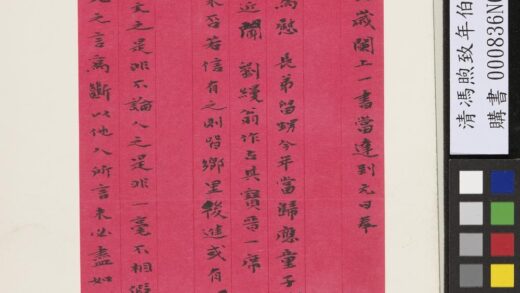 歲闌上一書當達到元日奉
為慰 長弟留 今年當歸應童子
近聞 劉緩翁作古其寶晉一席
未否若信有之則皆鄉里後進或有
文之是非不論人之是非一毫不相假
之之言為斷以他人所言未必盡如
清馮煦致年伯
購書 000836N0